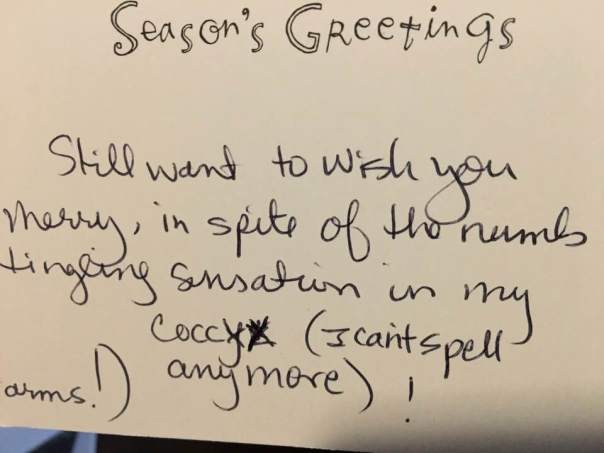 Season's Greetings
Still want to wish you
merry, in spite of the numb
tingling sensation in my
coccyx (I can't spell
arms!) anymore)!